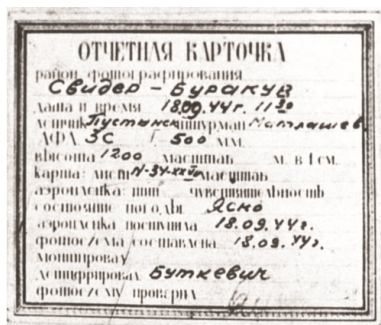 ОТЧЕТНАЯ КАРТОЧКА
район фотографирования
Свидер - Буракув
дата и время 18.09.44г. 11 30
летчик Пустынск штурман Матлашев.
АФА ЗС F. 500 мм.
высота 1200 масштаб м. в 1 см.
карта: лист N-34-XXVI масштаб
аэропленка: тип чувствительность
состояние погоды Ясно
аэропленка поступила 18.09.44г.
фотосхема составлена 18.09.44г.
монтировал
дешифрировал Буткевич
фотосхему проверил